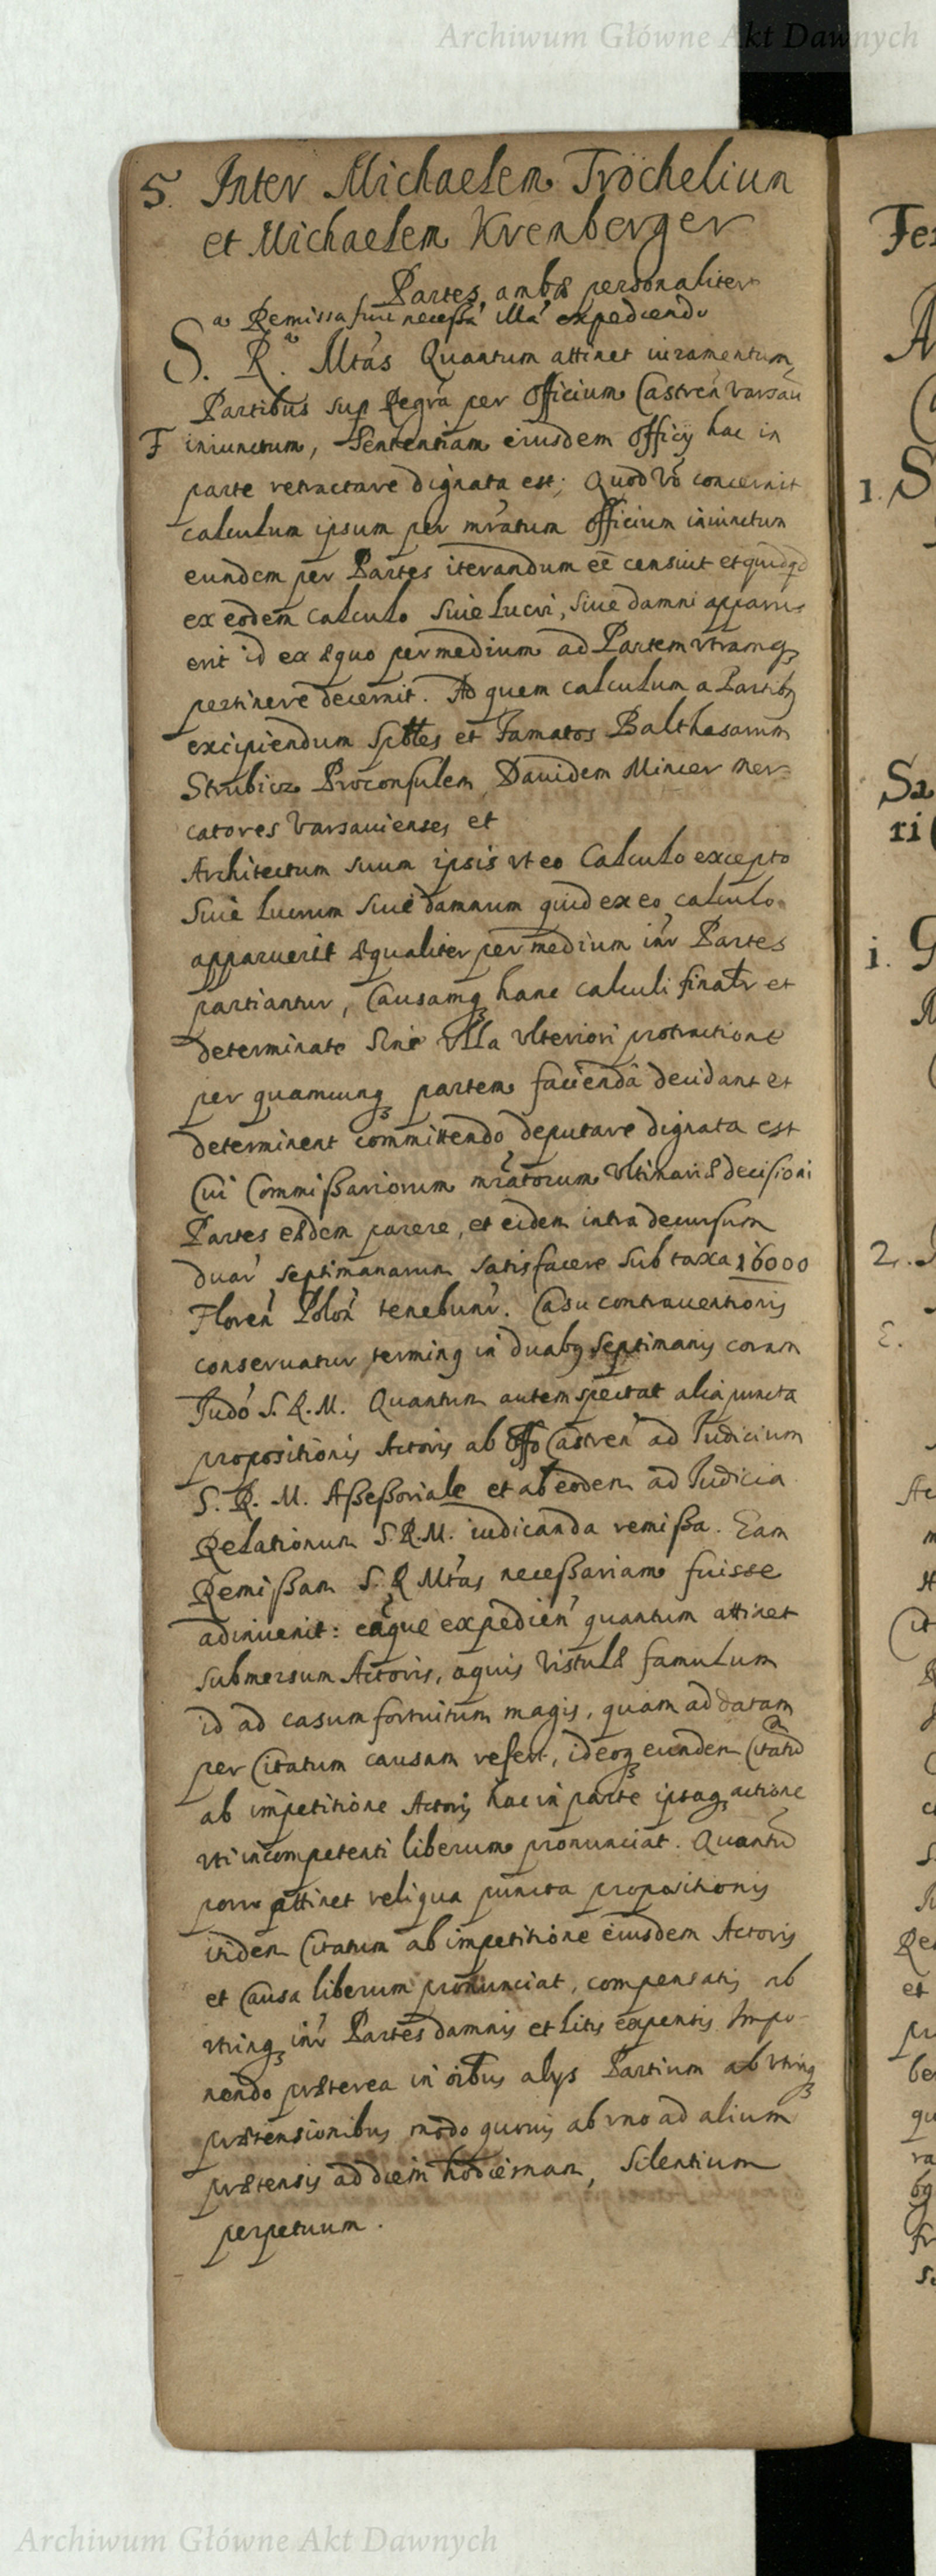 Archiwum Główne Akt Dawnych
5. Inter Michaelem Tröchelium
et Michaelem Krenberger
Partes ambæ personaliter
a Remissa fuit necessa illa expediendo
S. R. Mtas Quantum attinet iuramentum
Partibus sup Regra per Officium Castren Varsau
F iniunctum, Sententiam eiusdem Officij hac in
parte retractare dignata est; Quod Vo concernit
calculum ipsum per mratum Officium iniunctum
eundem per Partes iterandum eē censuit et quidqd
ex eodem calculo siue Lucri, siue damni apparu-
erit id ex æquo per medium ad Partem vtramq3
pertinere decernit. Ad quem calculum a Partib9
excipiendum Spttes et Famatos Balthasarum
Strubicz Proconsulem, Dauidem Mincer Mer-
catores Varsauienses et
Architectum suum ipsis vt eo Calculo excepto
Siue Lucrum siue damnum quid ex eo calculo
apparuerit æqualiter per medium inr Partes
partiantur, Causamq3 hanc calculi finalr et
determinate sine vlla vlteriori protractione
per quamcunq3 partem faciendā decidant et
determinent committendo deputare dignata est
Cui Commißariorum mratorum Vltimariæ decisioni
Partes eædem parere, et eidem intra decursum
duar septimanarum satisfacere sub taxa 16000
Floren Polon tenebunr. Casu contrauentionis
conseruatur termin9 in duab9 septimanis coram
Judo S. R. M. Quantum autem spectat alia puncta
propositionis Actoris ab Offo Castren ad Iudicium
S. R. M. Aßeßoriale et ab eodem ad Iudicia
Relationum S. R. M. iudicanda remißa. Eam
Remißam S. R Mtas neceßariam fuisse
adinuenit: eaque expedien quantum attinet
submersum Actoris, aquis Vistulæ famulum
id ad casum fortuitum magis, quam ad datam
per Citatum causam refert, ideoq3 eundem Citatū
ab impetitione Actoris hac in parte ipsaq3 actione
vti incompetenti liberum pronunciat. Quantū
porro attinet reliqua puncta propositionis
itidem Citatum ab impetitione eiusdem Actoris
et Causa liberum pronunciat, compensatis ab
vtrinq3 inr Partes damnis et Litis expensis Impo-
nendo præterea in oibus alijs Partium ab vtrinq3
prætensionibus, modo quouis ab vno ad alium
prætensis ad diem hodiernam, Silentium
perpetuum.
Archiwum Główne Akt Dawnych